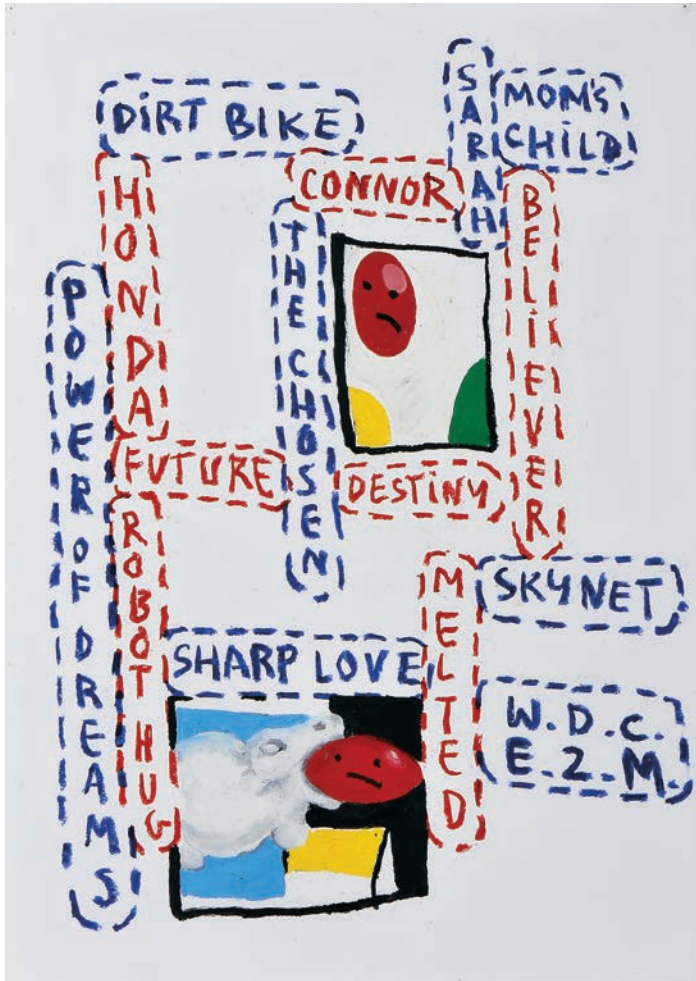 SARAH
MOM'S
CHILD
DiRT BIKE
CONNOR
HONDA
THE CHOSEN
BELiEVER
POWER OF DREAMS
FUTURE
DESTINY
ROBOT HUG
MELTED
SKYNET
SHARP LOVE
W.D.C.
E.2.M.